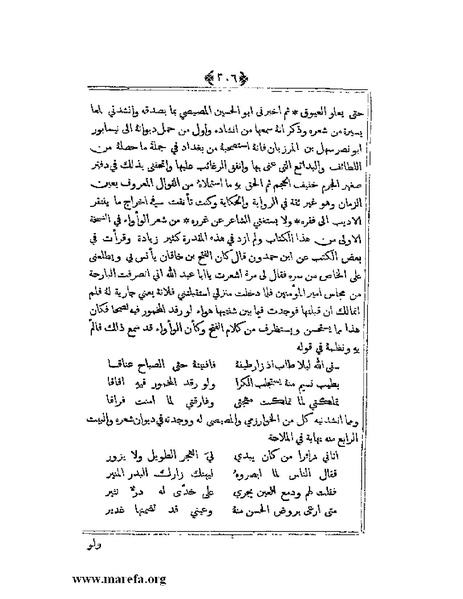 ﴿٣٠٦﴾
حتى يعلو العيوق * ثم اخبرنى ابو الحسين المصيصي بما يصدقه وانشدني لمعا
يسيرة من شعره وذكر انه سمعها من انشاده واول من حمل ديوانه الى نيسابور
ابو نصر سهل بن المرزبان فانه استصحبه من بغداد في جملة ما حصله من
اللطائف والبدائع التى عنى بها وانفق الرغائب عليها واتحفنى بذلك في دفتر
صغير الجرم خفيف الحجم ثم الحق به ما استملاه من القوال المعروف بعين
الزمان وهو غير ثقة في الرواية والحكاية وكنت تأنقت في اخراج ما يفتقر
الاديب الى فقره * ولا يستغني الشاعر عن غرره * من شعر الوأواء في النسخة
الاولى من هذا الكتاب ولم ازد في هذه المقدرة كثير زيادة وقرأت في
بعض الكتب عن ابن حمدون قال كان الفتح بن خاقان يأنس بي ويطلعنى
على الخاص من سره فقال لى مرة اشعرت ياابا عبد الله اني انصرفت البارحة
من مجلس امير المؤمنين فلما دخلت منزلي استقبلتنى فلانة يعني جارية له فلم
اتمالك ان قبلتها فوجدت فيما بين شفتيها هواء لو رقد المخمور فيه لصحا فكان
هذا مما يستحسن ويستظرف من كلام الفتح وكأن الوأواء قد سمع ذلك فالمّ
به ونظمه في قوله
سقى الله ليلا طاب اذ زار طيفه فافنيته حتى الصباح عناقا
بطيب نسيم منه يستجلب الكرا ولو رقد المخمور فيه افاقا
تملكني لما تملكت مهجتي وفارقني لما امنت فراقا
ومما انشدنيه كل من الخوارزمي والمصيصى له ووجدته في ديوان شعره والبيت
الرابع منه نهاية في الملاحة
اتاني زائرا من كان يبدي لي الهجر الطويل ولا يزور
فقال الناس لما ابصروه ليهنك زارك البدر المنير
فقلت لهم ودمع العين يجري على خدّى له درّ نثير
متى ارعى بروض الحسن منه وعيني قد تضمنها غدير
ولو
www.marefa.org